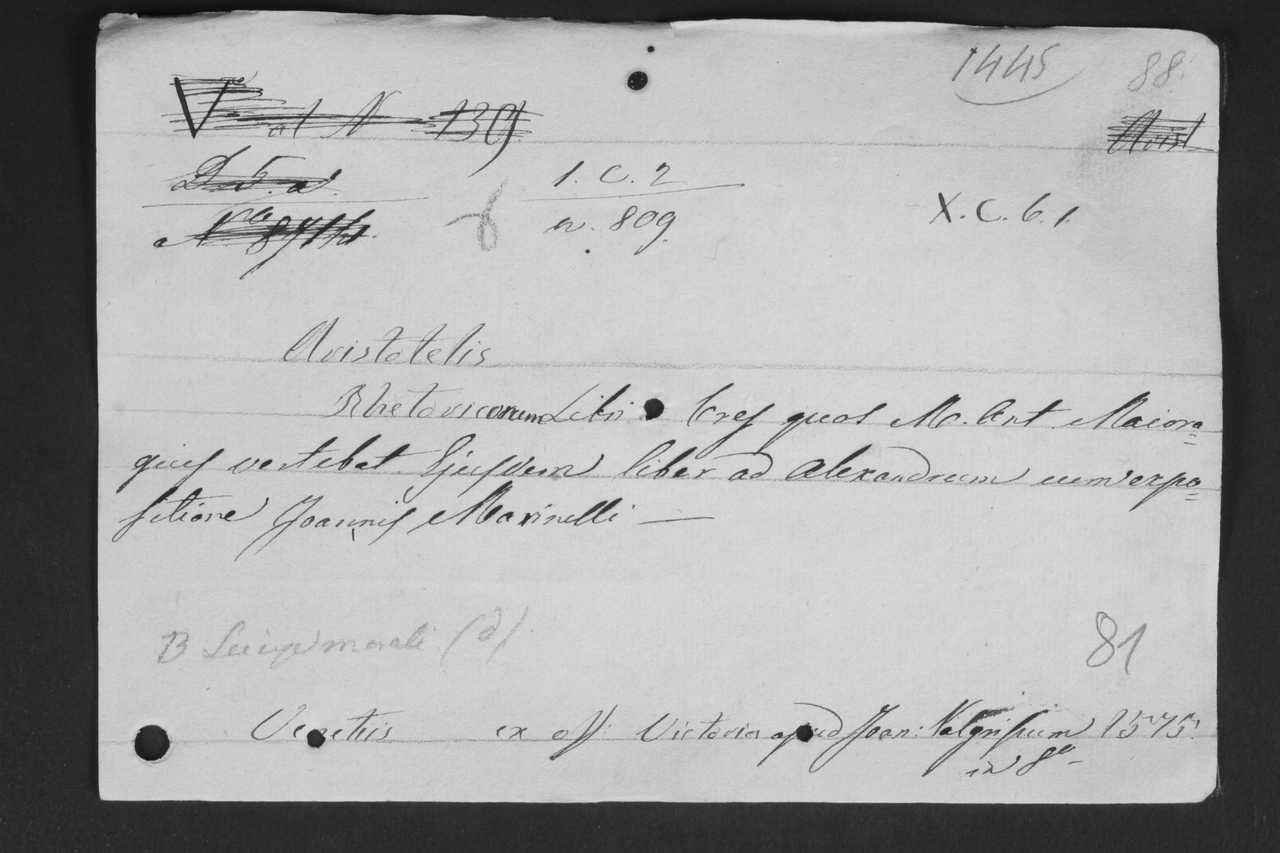 1445 88.
N 139 Arist
D. 5. a. 1. C. 2 X. C. 6. 1.
n. 809.
Aristotelis
Rhetoricorum Libri tres quos M. Ant. Maiora=
gius vertebat. Ejusdem liber ad Alexandrum cum expo=
sitione Joannis Marinelli —
B (d).
81
Venetiis ex off: Victoria apud Joan: Valgrisium 1575.
in 8°